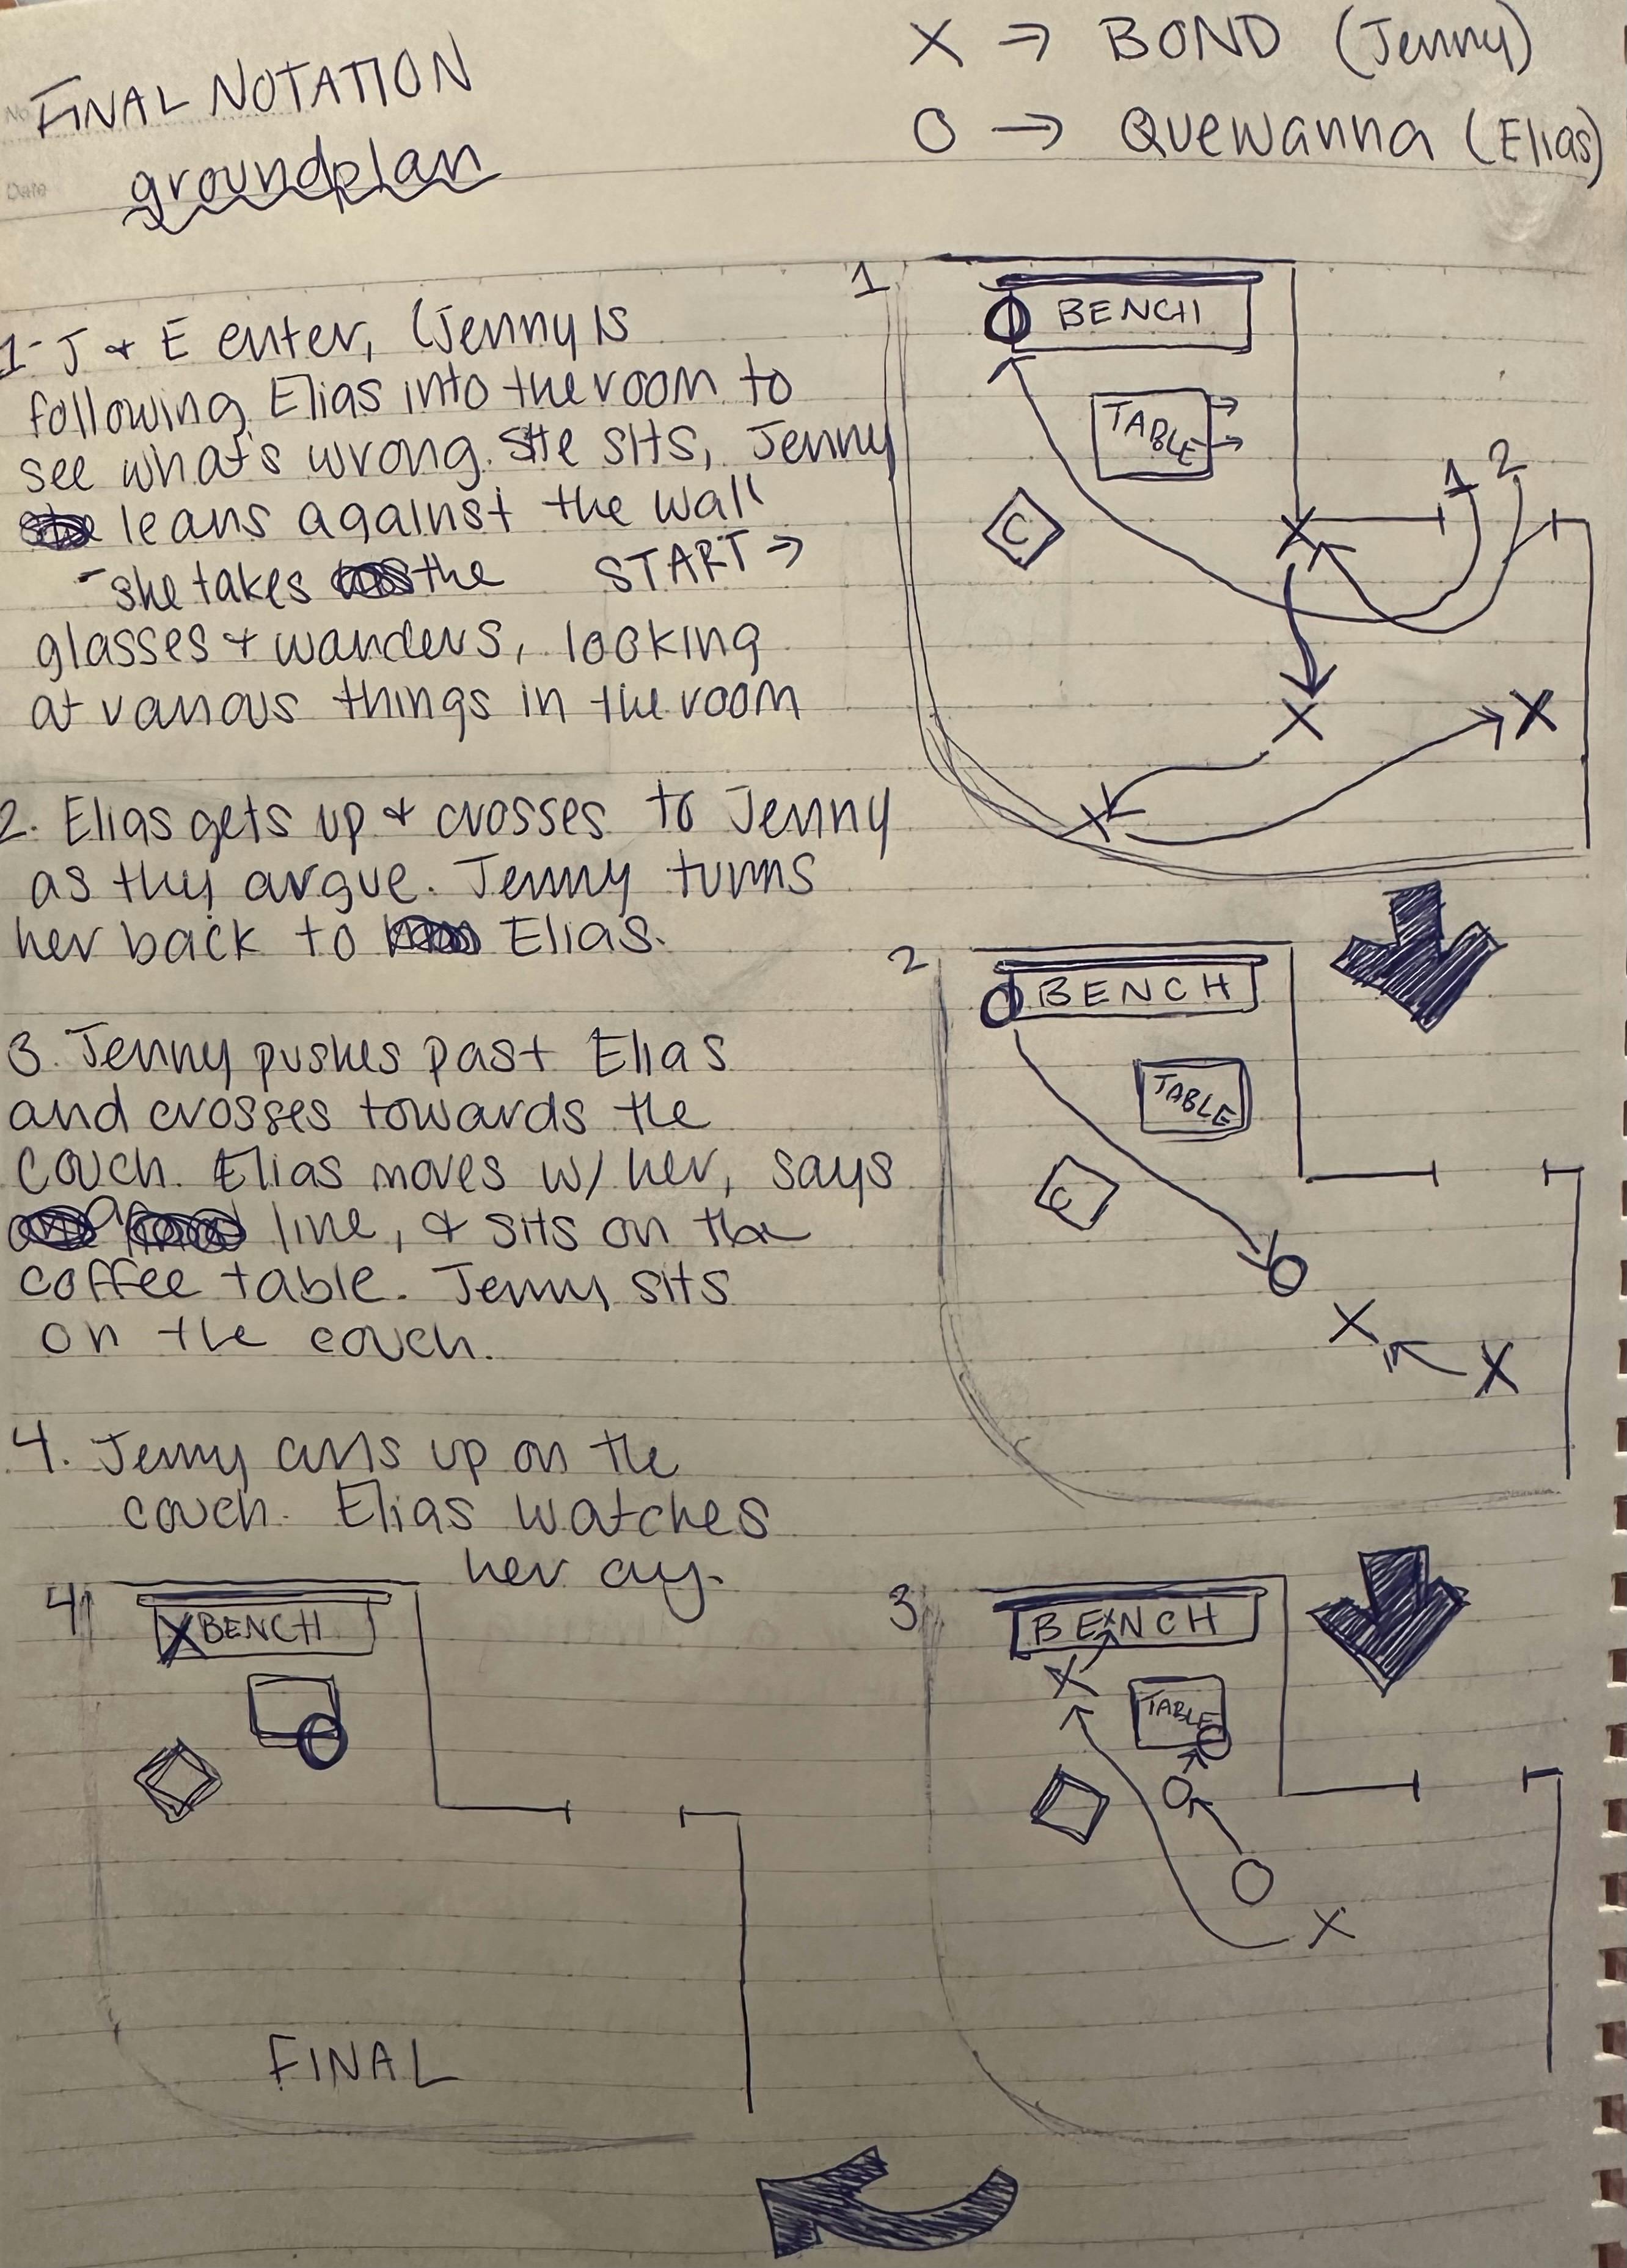 No.
Date
FINAL NOTATION
groundplan
X → BOND (Jenny)
O → Quewanna (Elias)
1- J + E enter, (Jenny is
following Elias into the room to
see what's wrong. She sits, Jenny
leans against the wall
- she takes the START →
glasses + wanders, looking
at various things in the room
2. Elias gets up + crosses to Jenny
as they argue. Jenny turns
her back to Elias.
3. Jenny pushes past Elias
and crosses towards the
couch. Elias moves w/ her, says
line, + sits on the
coffee table. Jenny sits
on the couch.
4. Jenny curls up on the
couch. Elias watches
her cry.
1
BENCH
TABLE
C
1 2
X
X
X
X
2
BENCH
TABLE
C
O
X
X
3
BENCH
X
X
TABLE
O
O
O
X
4
X BENCH
O
FINAL